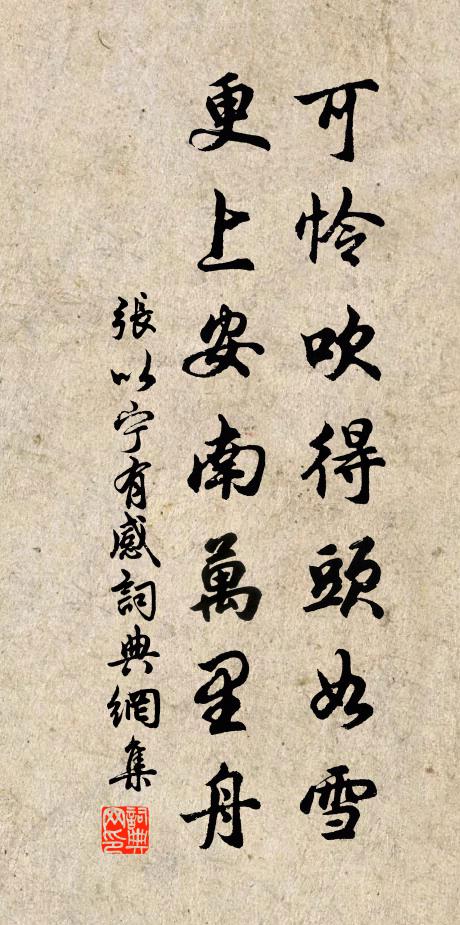 可怜吹得頭如雪
更上安南萬里舟
張以宁有感詞典網集
詞典
网印